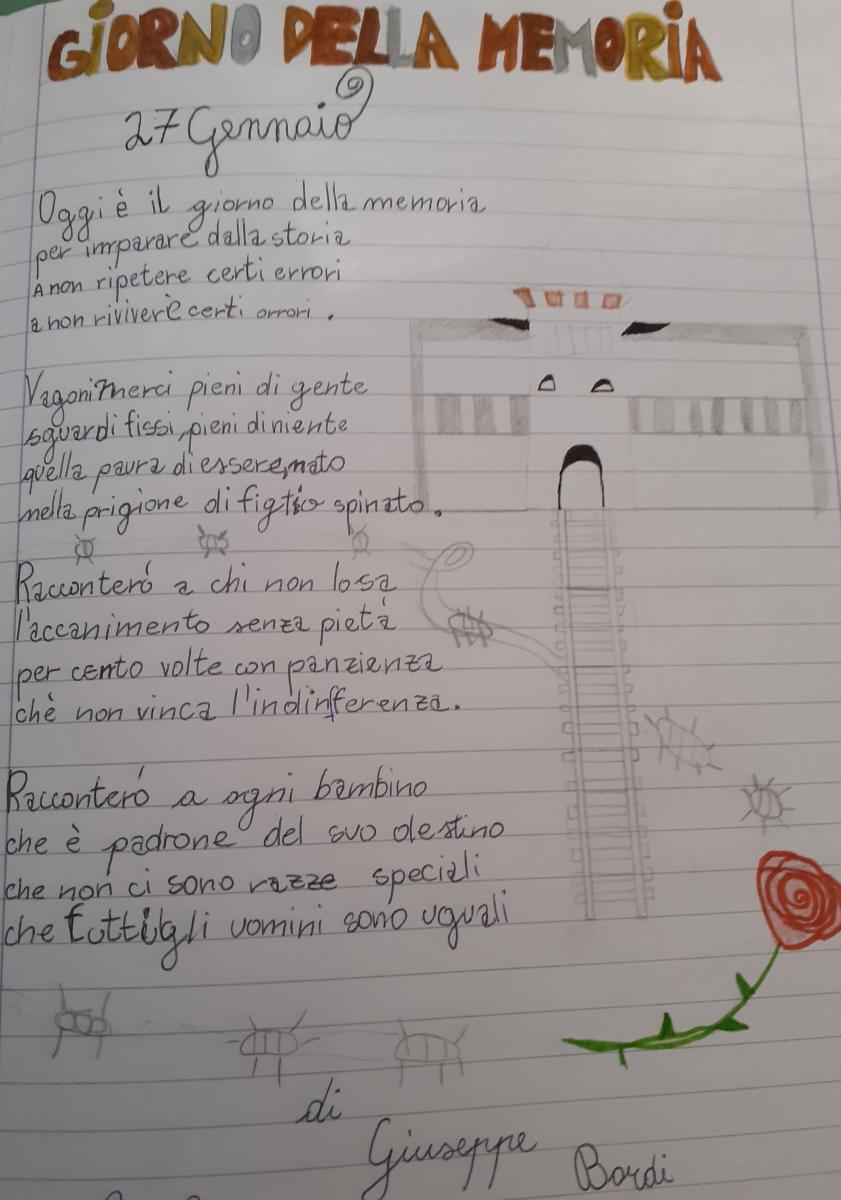 GIORNO DELLA MEMORIA
27 Gennaio
Oggi è il giorno della memoria
per imparare dalla storia
A non ripetere certi errori
a non rivivere certi orrori.
Vagoni merci pieni di gente
sguardi fissi, pieni di niente
quella paura di essere nato
nella prigione di figtio spinato.
Racconteró a chi non lo sa
l'accanimento senza pietá
per cento volte con panzienza
chè non vinca l'indinfferenza.
Racconteró a ogni bambino
che è padrone del suo destino
che non ci sono razze speciali
che tutti gli uomini sono uguali
di
Giuseppe Bordi